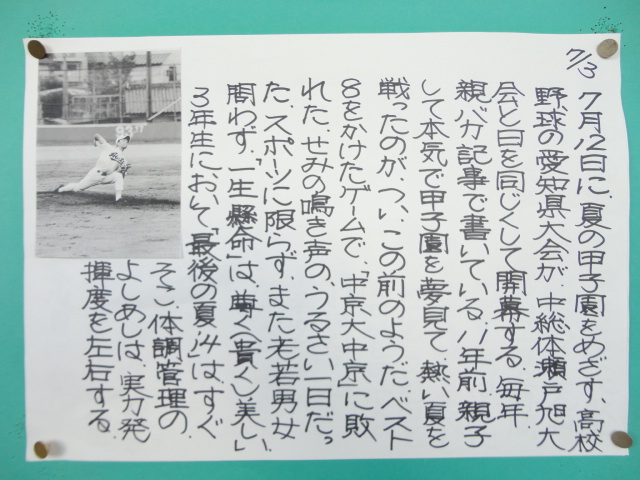 7/3
7月12日に、夏の甲子園をめざす、高校
野球の愛知県大会が、中総体瀬戸旭大
会と日を同じくして開幕する。毎年、
親バカ記事で書いている、11年前、親子
して本気で甲子園を夢見て、熱い夏を
戦ったのが、つい、この前のようだ。ベスト
8をかけたゲームで、「中京大中京」に敗
れた。せみの鳴き声の、うるさい一日だっ
た。スポーツに限らず、また老若男女
問わず、「一生懸命」は、尊く(貴く)美しい。
3年生において、「最後の夏'14」は、すぐ
そこ。体調管理の、
よしあしは、実力発
揮度を左右する。